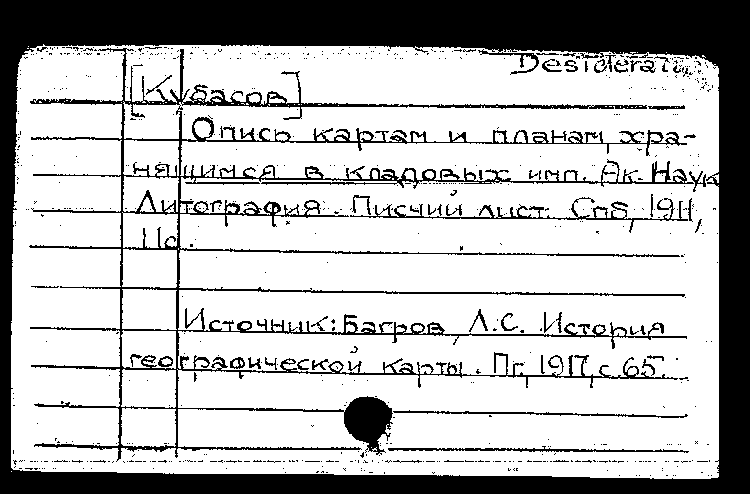 Desiderata
[Кубасов]
Опись картам и планам, хра-
нящимся в кладовых имп. Ак. Наук
Литография. Писчий лист. Спб, 1911,
11с.
Источник: Багров, Л.С. История
географической карты. Пг, 1917, с 65.